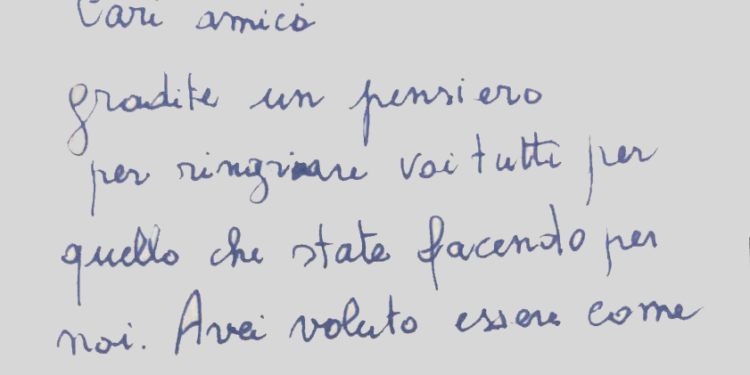 Cari amici
gradite un pensiero
per ringraziare voi tutti per
quello che state facendo per
noi. Avei voluto essere come